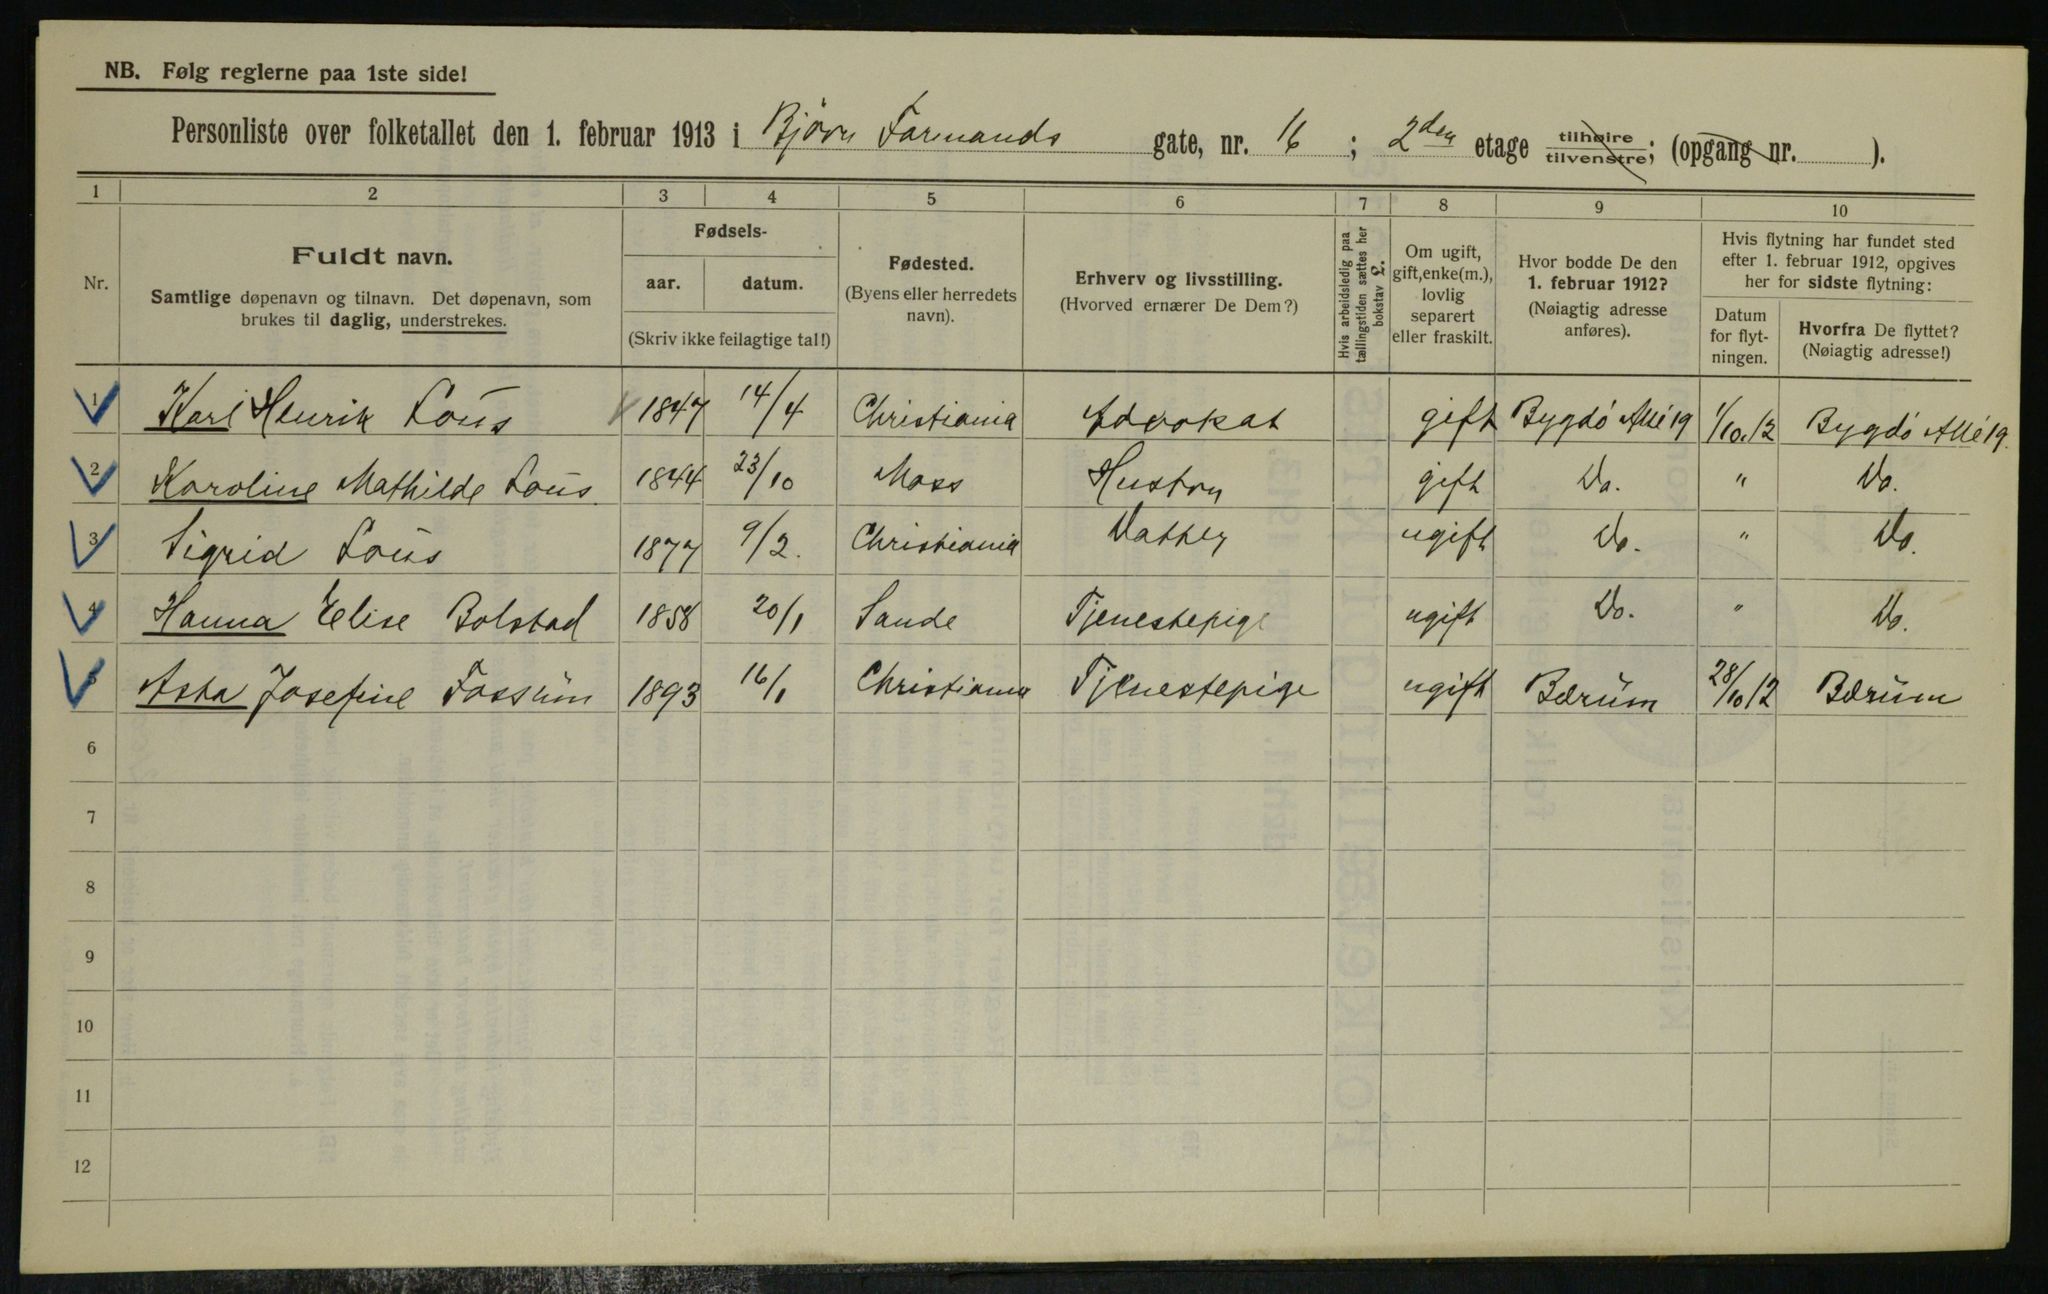 NB. Følg reglerne paa 1ste side!
Personliste over folketallet den 1. februar 1913 i Bjørn Farmands gate, nr. 16 ; 2den etage tilhøire tilvenstre; (opgang nr. ).
1 2 3 4 5 6 7 8 9 10
Nr.
Fuldt navn.
Samtlige døpenavn og tilnavn. Det døpenavn, som
brukes til daglig, understrekes.
Fødsels-
aar. datum.
(Skriv ikke feilagtige tal!)
Fødested.
(Byens eller herredets
navn).
Erhverv og livsstilling.
(Hvorved ernærer De Dem?)
Hvis arbeidsledig paa
tællingstiden sættes her
bokstav L.
Om ugift,
gift, enke(m.),
lovlig
separert
eller fraskilt.
Hvor bodde De den
1. februar 1912?
(Nøiagtig adresse
anføres).
Hvis flytning har fundet sted
efter 1. februar 1912, opgives
her for sidste flytning:
Datum
for flyt-
ningen.
Hvorfra De flyttet?
(Nøiagtig adresse!)
1 Karl Henrik Loüs 1847 14/4 Christiania Advokat gift Bygdö Allé 19 1/10.12 Bygdö Allé 19.
2 Karoline Mathilde Loüs 1844 23/10 Moss Hustru gift Do. " Do.
3 Sigrid Loüs 1877 9/2. Christiania Datter ugift Do. " Do.
4 Hanna Elise Bolstad 1858 20/1 Sande Tjenestepige ugift Do. " Do.
5 Asta Josefine Fossüm 1893 16/1 Christiania Tjenestepige ugift Bærüm 28/10 12 Bærüm
6
7
8
9
10
11
12